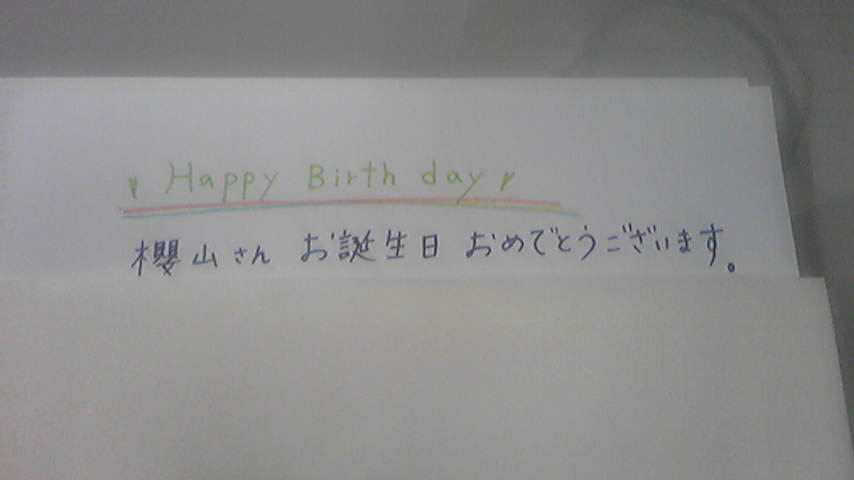 Happy Birth day
櫻山さん お誕生日 おめでとうございます。